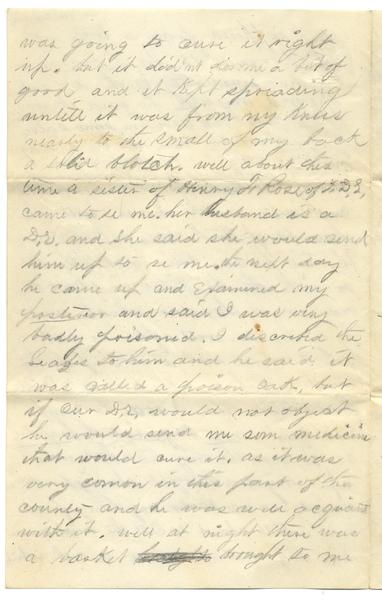 was going to cure it right
up. but it did'nt do me a bit of
good and it kept spriading
untill it was from my knees
nearly to the small of my back
a solid blotch. well about this
time a sister of Henry T Rose of
came to se me. her husband is a
Dr, and she said she would send
him up to se me. the next day
he came up and examined my
posterior and said I was very
badly poisoned. I discribed the
leafs to him and he said it
was called a poison oak, but
if our Dr, would not object
he would send me som medicine
that would cure it. as it was
very comon in this part of the
country and he was well acquaint
with it. well at night there was
a basket brought to me